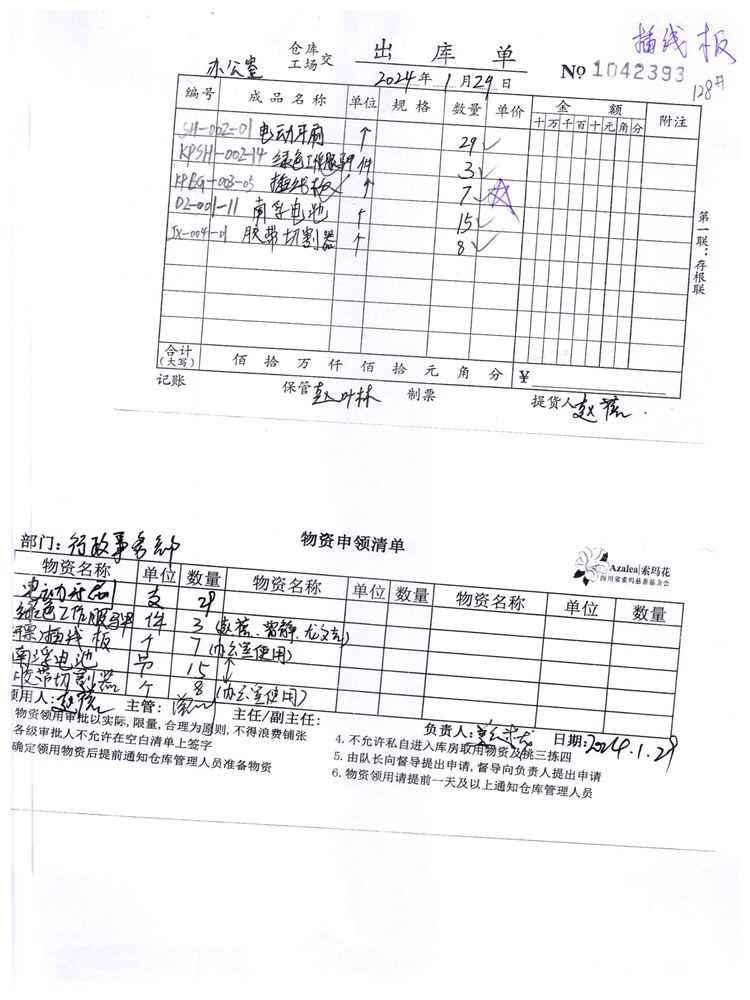 插线板
仓库
工场 交
出库单
办公室
2024年1月29日
№ 1042393
128#
编号 成品名称 单位 规格 数量 单价 金额 附注
十万千百十元角分
SH-002-01 电动牙刷 个 29
KPSH-002-14 绿色工作服 件 3
003-03 插线板 个 7
D2-001-11 南孚电池 个 15
JX-004-01 胶带切割器 个 8
第一联：存根联
合计(大写) 佰 拾 万 仟 佰 拾 元 角 分 ¥
记账 保管 赵叶林 制票 提货人 赵
物资申领清单
部门：行政事务部
Azalea|索玛花
四川省索玛慈善基金会
物资名称 单位 数量 物资名称 单位 数量 物资名称 单位 数量
电动牙刷 支 29
绿色工作服 件 3
插线板 个 7 (办公室使用)
南孚电池 节 15
胶带切割器 个 8 (办公室使用)
领用人: 主管: 主任/副主任: 负责人: 日期: 2024.1.29
物资领用审批以实际,限量,合理为原则,不得浪费铺张
各级审批人不允许在空白清单上签字
确定领用物资后提前通知仓库管理人员准备物资
4. 不允许私自进入库房取用物资及挑三拣四
5. 由队长向督导提出申请,督导向负责人提出申请
6. 物资领用请提前一天及以上通知仓库管理人员